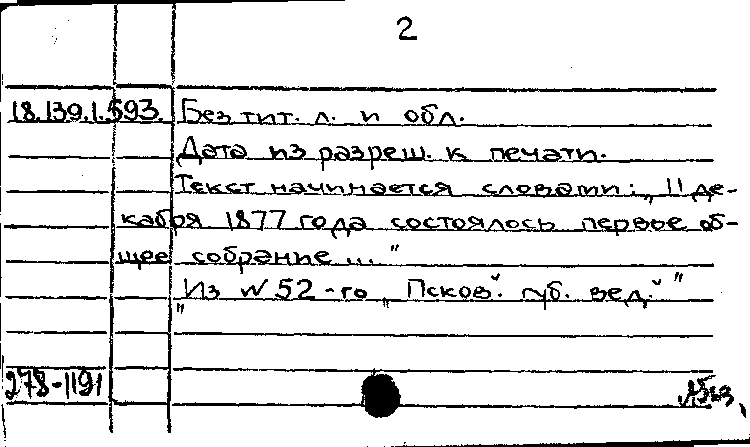 2
18.139.1.593. Без тит. л. и обл.
Дата из разреш. к печати.
Текст начинается словами: „11 де-
кабря 1877 года состоялось первое об-
щее собрание..."
Из № 52-го „Псков. губ. вед."
"
278-1191